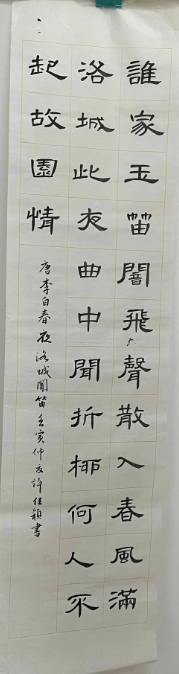 誰家玉笛闇飛聲散入春風滿
洛城此夜曲中聞折柳何人不
起故園情
唐李白春夜洛城聞笛壬寅仲